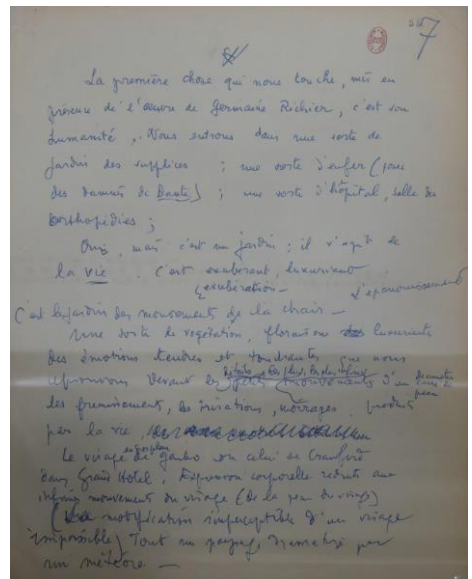 7
La première chose qui nous touche, mis en
présence de l'œuvre de Germaine Richier, c'est son
humanité. Nous entrons dans une sorte de
jardin des supplices ; une sorte d'enfer (
des damnés de Dante) ; une sorte d'hôpital, salle des
orthopédies ;
Oui, mais c'est un jardin ; il s'agit de
la vie. C'est exubérant, luxuriant
exubération —
l'épanouissement
C'est le jardin des mouvements de la chair —
Une sorte de végétation, floraison luxuriante
des émotions tendres et touchantes que nous
éprouvons devant les petits mouvements d'un
les frémissements, les irisations, produits
par la vie,
Le visage de Garbo ou celui de Crawford
dans Grand Hotel. Expression corporelle réduite aux
infimes mouvements du visage (de la peau du visage)
(modification imperceptible d'un visage
impossible) Tout un paysage, dramatisé par
un météore —